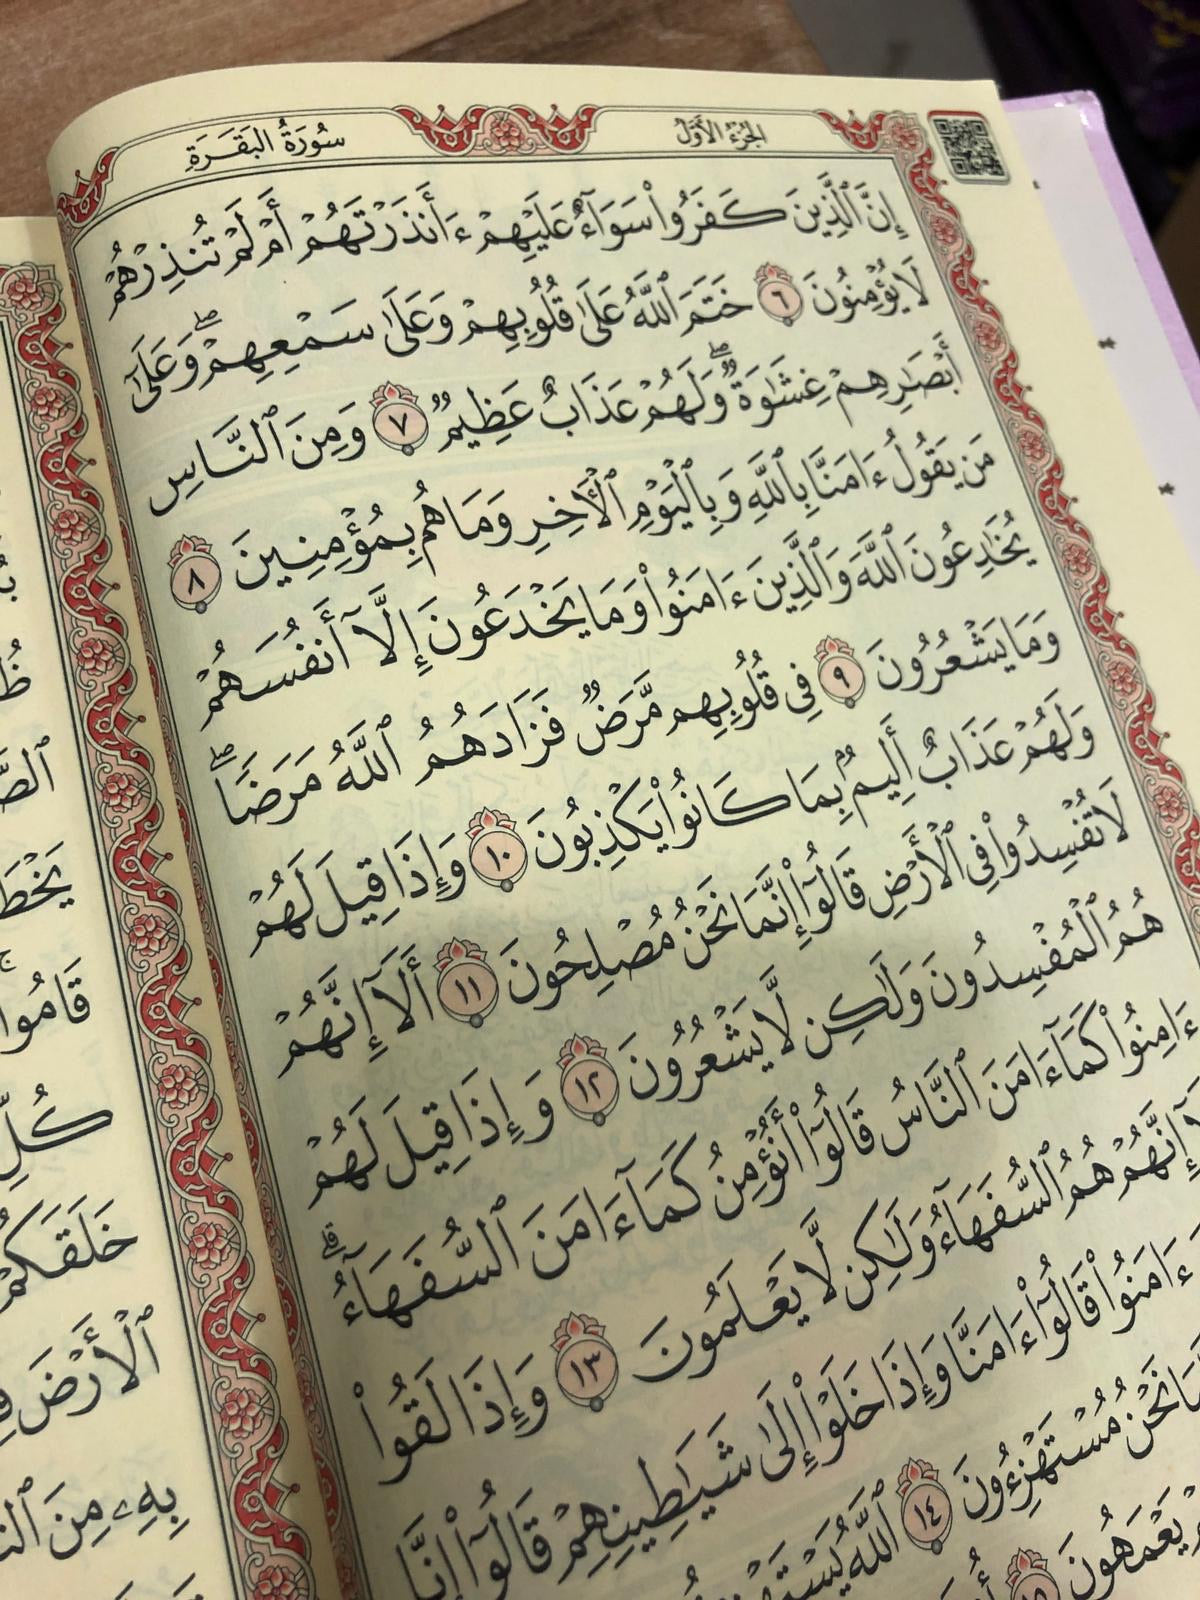 سُورَةُ البَقَرَةِ
الجُزْءُ الأَوَّلُ
إِنَّ ٱلَّذِينَ كَفَرُوا۟ سَوَآءٌ عَلَيْهِمْ ءَأَنذَرْتَهُمْ أَمْ لَمْ تُنذِرْهُمْ
لَا يُؤْمِنُونَ ٦ خَتَمَ ٱللَّهُ عَلَىٰ قُلُوبِهِمْ وَعَلَىٰ سَمْعِهِمْ ۖ وَعَلَىٰٓ
أَبْصَـٰرِهِمْ غِشَـٰوَةٌ ۖ وَلَهُمْ عَذَابٌ عَظِيمٌ ٧ وَمِنَ ٱلنَّاسِ
مَن يَقُولُ ءَامَنَّا بِٱللَّهِ وَبِٱلْيَوْمِ ٱلْـَٔاخِرِ وَمَا هُم بِمُؤْمِنِينَ ٨
يُخَـٰدِعُونَ ٱللَّهَ وَٱلَّذِينَ ءَامَنُوا۟ وَمَا يَخْدَعُونَ إِلَّآ أَنفُسَهُمْ
وَمَا يَشْعُرُونَ ٩ فِى قُلُوبِهِم مَّرَضٌ فَزَادَهُمُ ٱللَّهُ مَرَضًا ۖ
وَلَهُمْ عَذَابٌ أَلِيمٌۢ بِمَا كَانُوا۟ يَكْذِبُونَ ١٠ وَإِذَا قِيلَ لَهُمْ
لَا تُفْسِدُوا۟ فِى ٱلْأَرْضِ قَالُوٓا۟ إِنَّمَا نَحْنُ مُصْلِحُونَ ١١ أَلَآ إِنَّهُمْ
هُمُ ٱلْمُفْسِدُونَ وَلَـٰكِن لَّا يَشْعُرُونَ ١٢ وَإِذَا قِيلَ لَهُمْ
ءَامِنُوا۟ كَمَآ ءَامَنَ ٱلنَّاسُ قَالُوٓا۟ أَنُؤْمِنُ كَمَآ ءَامَنَ ٱلسُّفَهَآءُ ۗ
إِنَّهُمْ هُمُ ٱلسُّفَهَآءُ وَلَـٰكِن لَّا يَعْلَمُونَ ١٣ وَإِذَا لَقُوا۟
ءَامَنُوا۟ قَالُوٓا۟ ءَامَنَّا وَإِذَا خَلَوْا۟ إِلَىٰ شَيَـٰطِينِهِمْ قَالُوٓا۟ إِنَّا
نَحْنُ مُسْتَهْزِءُونَ ١٤ ٱللَّهُ
يَعْمَهُونَ ١٥
قَامُوا۟
خَلَقَكُمْ
ٱلْأَرْضَ
بِهِۦ مِنَ